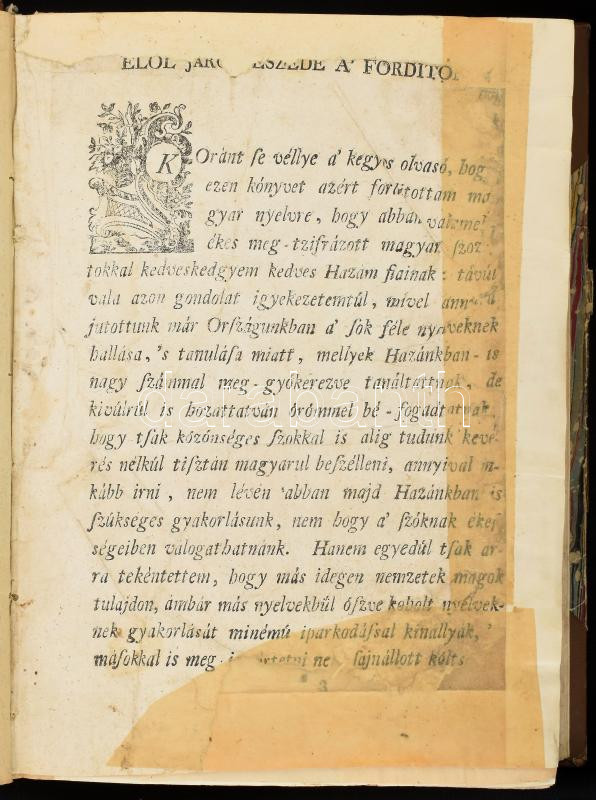 ELOL JARO BESZEDE A' FORDITO
KOránt ſe véllye a' kegyes olvasó, hog
ezen kónyvet azért fordítottam ma
gyar nyelvre, hogy abban valamel
ékes meg-tzifrázott magyar ſzoz
tokkal kedveskedgyem kedves Hazám fiainak: távúl
vala azon gondolat igyekezetemtúl, mivel annyira
jutottunk már Országunkban a' ſok féle nyelveknek
hallása, 's tanulása miatt, mellyek Hazánkban-is
nagy ſzámmal meg-gyókerezve tanáltatnak, de
kivúlrúl is hozattatván órómmel bé-fogadtatnak,
hogy tſak kózónséges ſzokkal is alig tudunk keve
rés nélkúl tiſztán magyarul beſzélleni, annyival in-
kább irni, nem lévén abban majd Hazánkban is
ſzúkséges gyakorlásunk, nem hogy a' ſzóknak ékes
ségeiben válogathatnánk. Hanem egyedúl tſak ar-
ra tekéntettem, hogy más idegen nemzetek magok
tulajdon, ámbár más nyelvekbúl óſzve koholt nyelvek-
nek gyakorlását minémú iparkodáſsal kinállyák, '
másokkal is meg- ne ſajnállott kólts
* 3
darabanth